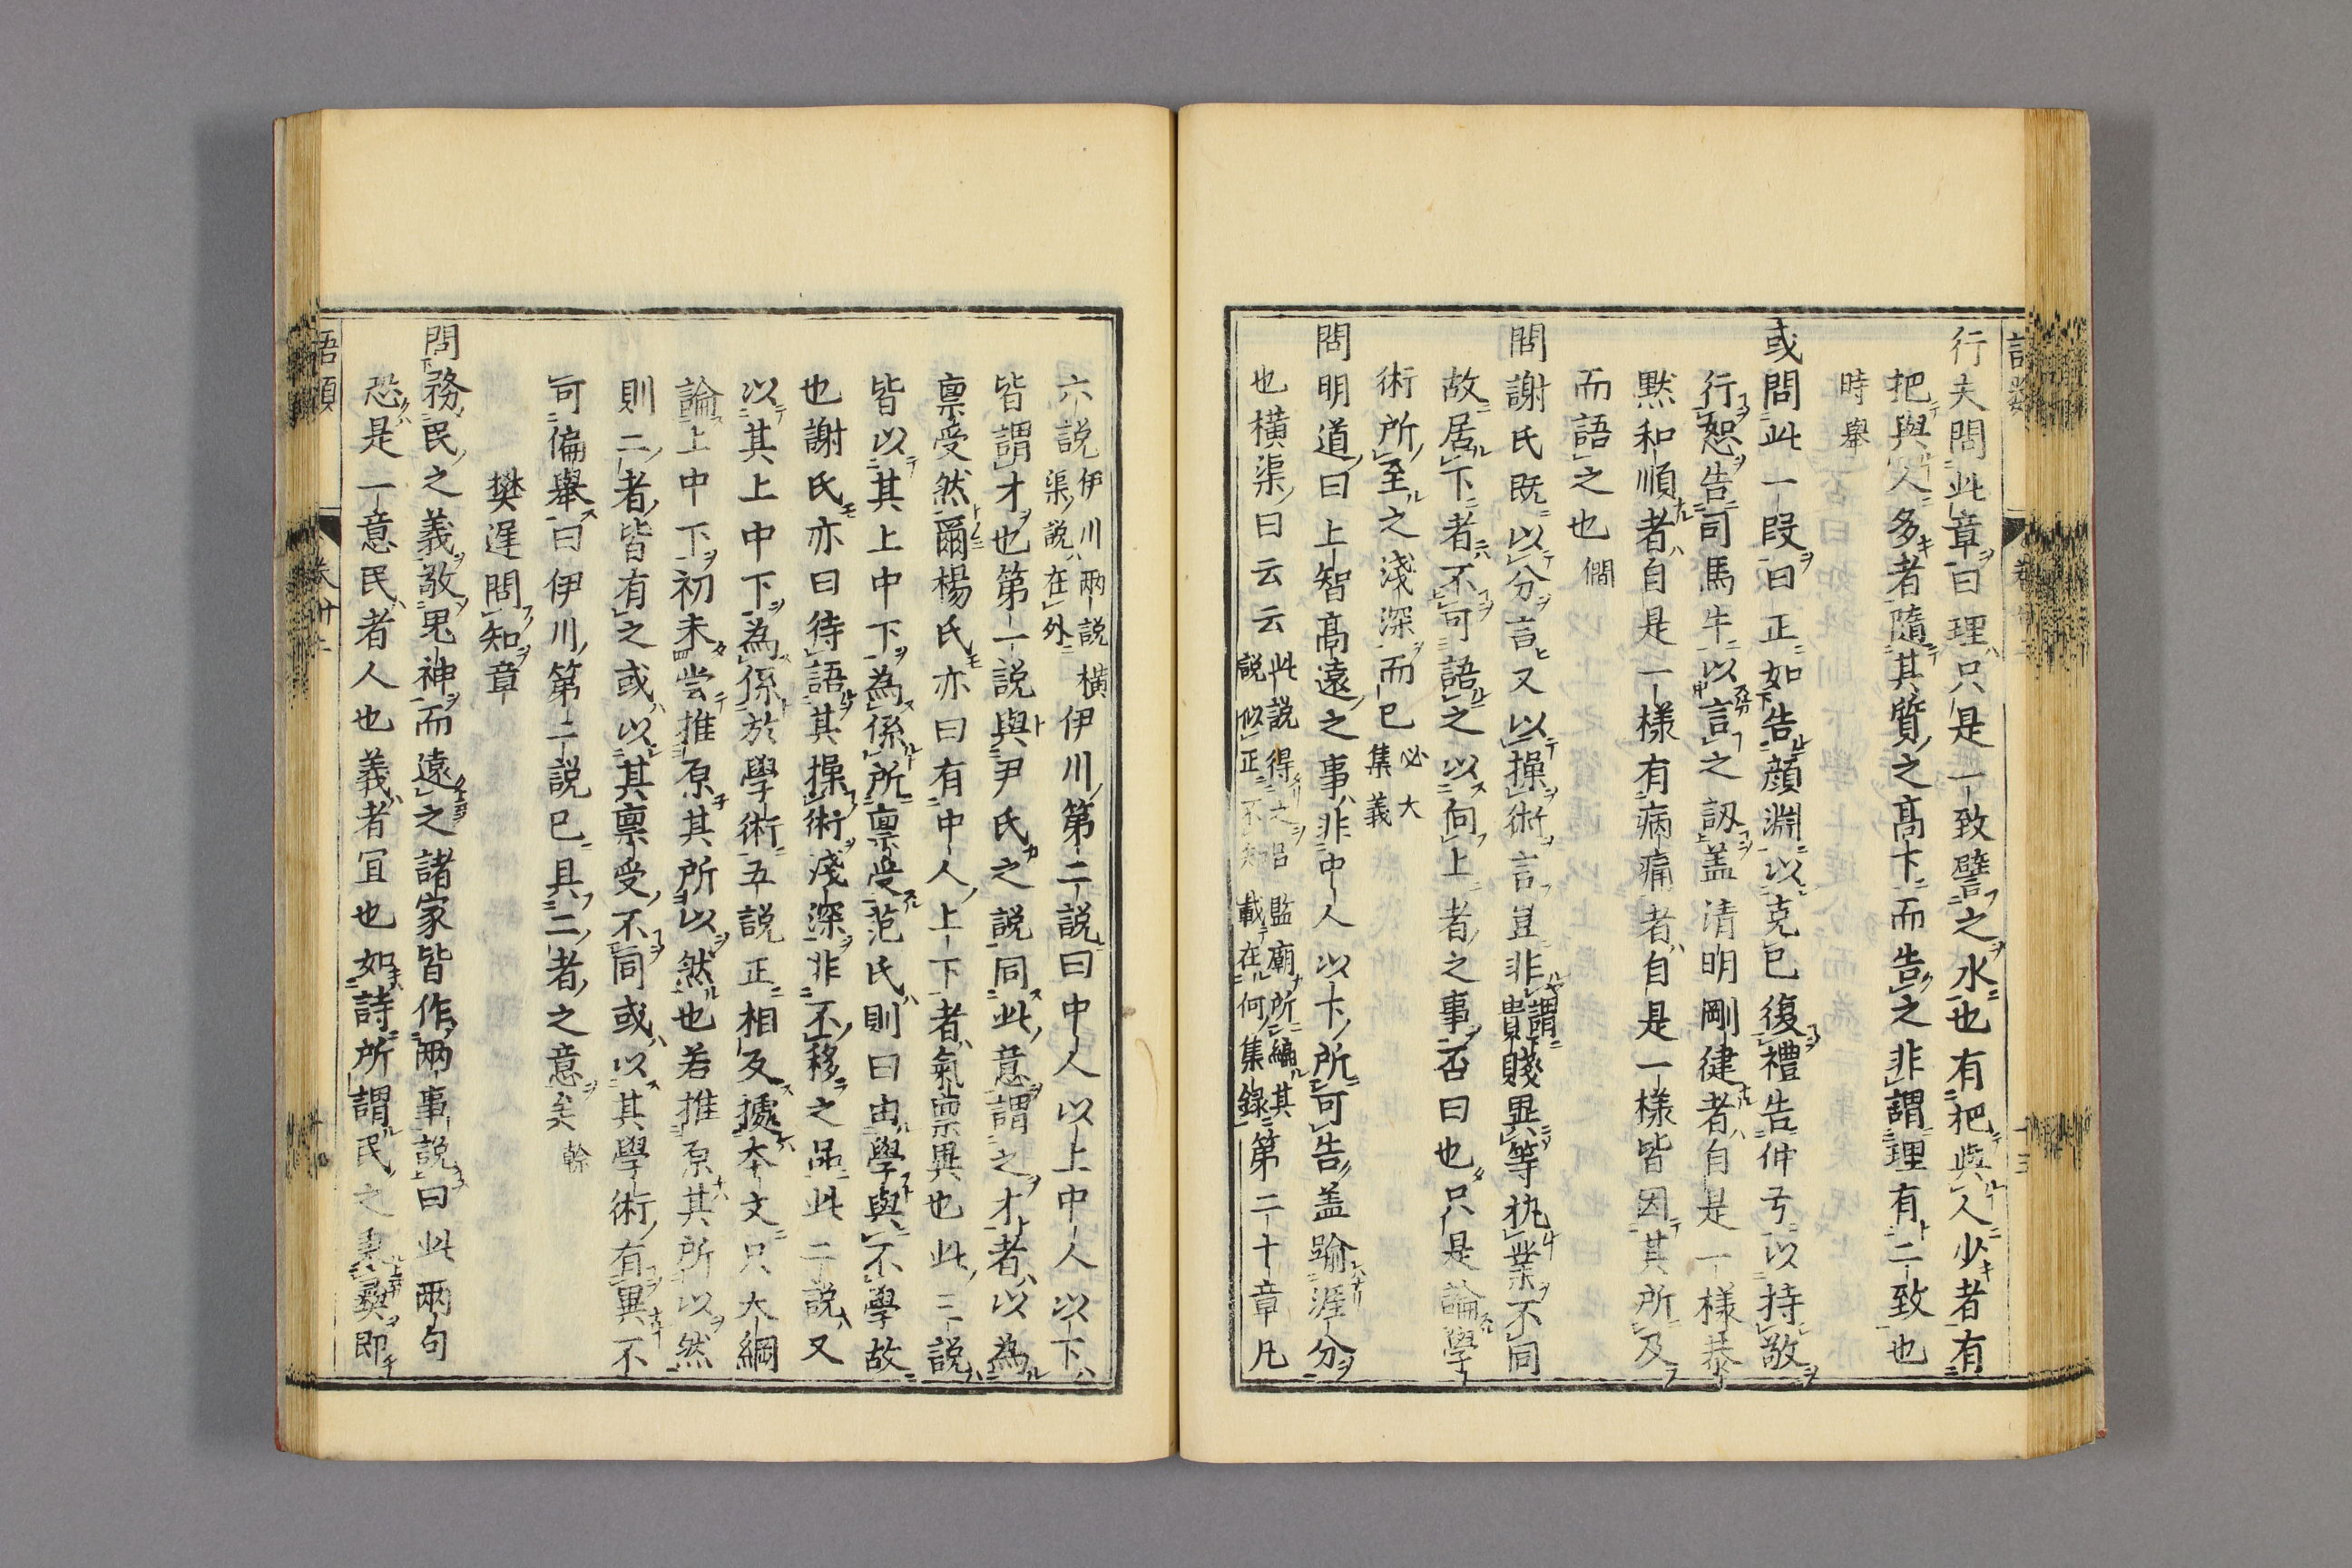 行夫問此章曰理只是一致譬之水也有把與人少者有
把與人多者隨其質之高下而告之非謂理有二致也
時舉
或問此一段曰正如告顔淵以克己復禮告仲弓以持敬
行恕告司馬牛以言之訒盖清明剛健者自是一樣恭
黙和順者自是一樣有病痛者自是一樣皆因其所及
而語之也 僩
問謝氏既以分言又以操術言豈非謂貴賤異等執業不同
故居下者不可語之以向上者之事否曰也只是論學
術所至之淺深而已 必大 集義
問明道曰上智高遠之事非中人以下所可告盖踰涯分
也橫渠曰云云 此説得之呂監廟所編其説似正不知載在何集録 第二十章凡
六説 伊川兩説橫渠説在外 伊川第二説曰中人以上中人以下
皆謂才也第一説與尹氏之説同此意謂之才者以為
稟受然爾楊氏亦曰有中人上下者氣稟異也此三説
皆以其上中下為係所稟受范氏則曰由學與不學故
也謝氏亦曰待語其操術淺深非不移之品此二説又
以其上中下為係於學術五説正相反據本文只大綱
論上中下初未嘗推原其所以然也若推原其所以然
則二者皆有之或以其稟受不同或以其學術有異不
可偏舉曰伊川第二説已具二者之意矣 榦
樊遲問知章
問務民之義敬鬼神而遠之諸家皆作兩事説曰此兩句
恐是一意民者人也義者宜也如詩所謂民之秉彛即
語類